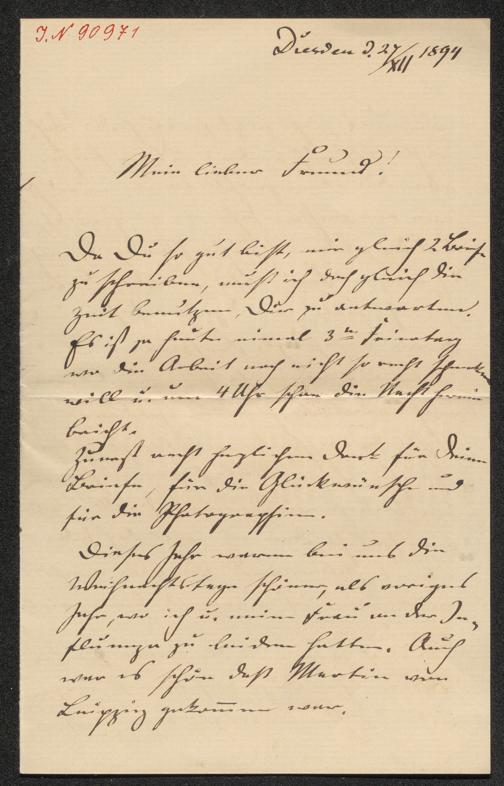 I.N 90971
Dresden d. 27/XII 1894
Mein lieber Freund!
Da Du so gut bist, mir gleich 2 Briefe
zu schreiben, muß ich doch gleich die
Zeit benutzen, Dir zu antworten.
Es ist ja heute einmal 3ter Feiertag
wo die Arbeit noch nicht so recht schmecken
will u. um 4 Uhr schon die Nacht herein
bricht.
Zunächst recht herzlichen Dank für Deine
Briefe, für die Glückwünsche und
für die Photographien.
Dieses Jahr waren bei uns die
Weihnachtstage schöner, als voriges
Jahr, wo ich u. meine Frau an der In-
fluenza zu leiden hatten. Auch
war es schön daß Martin von
Leipzig gekommen war.